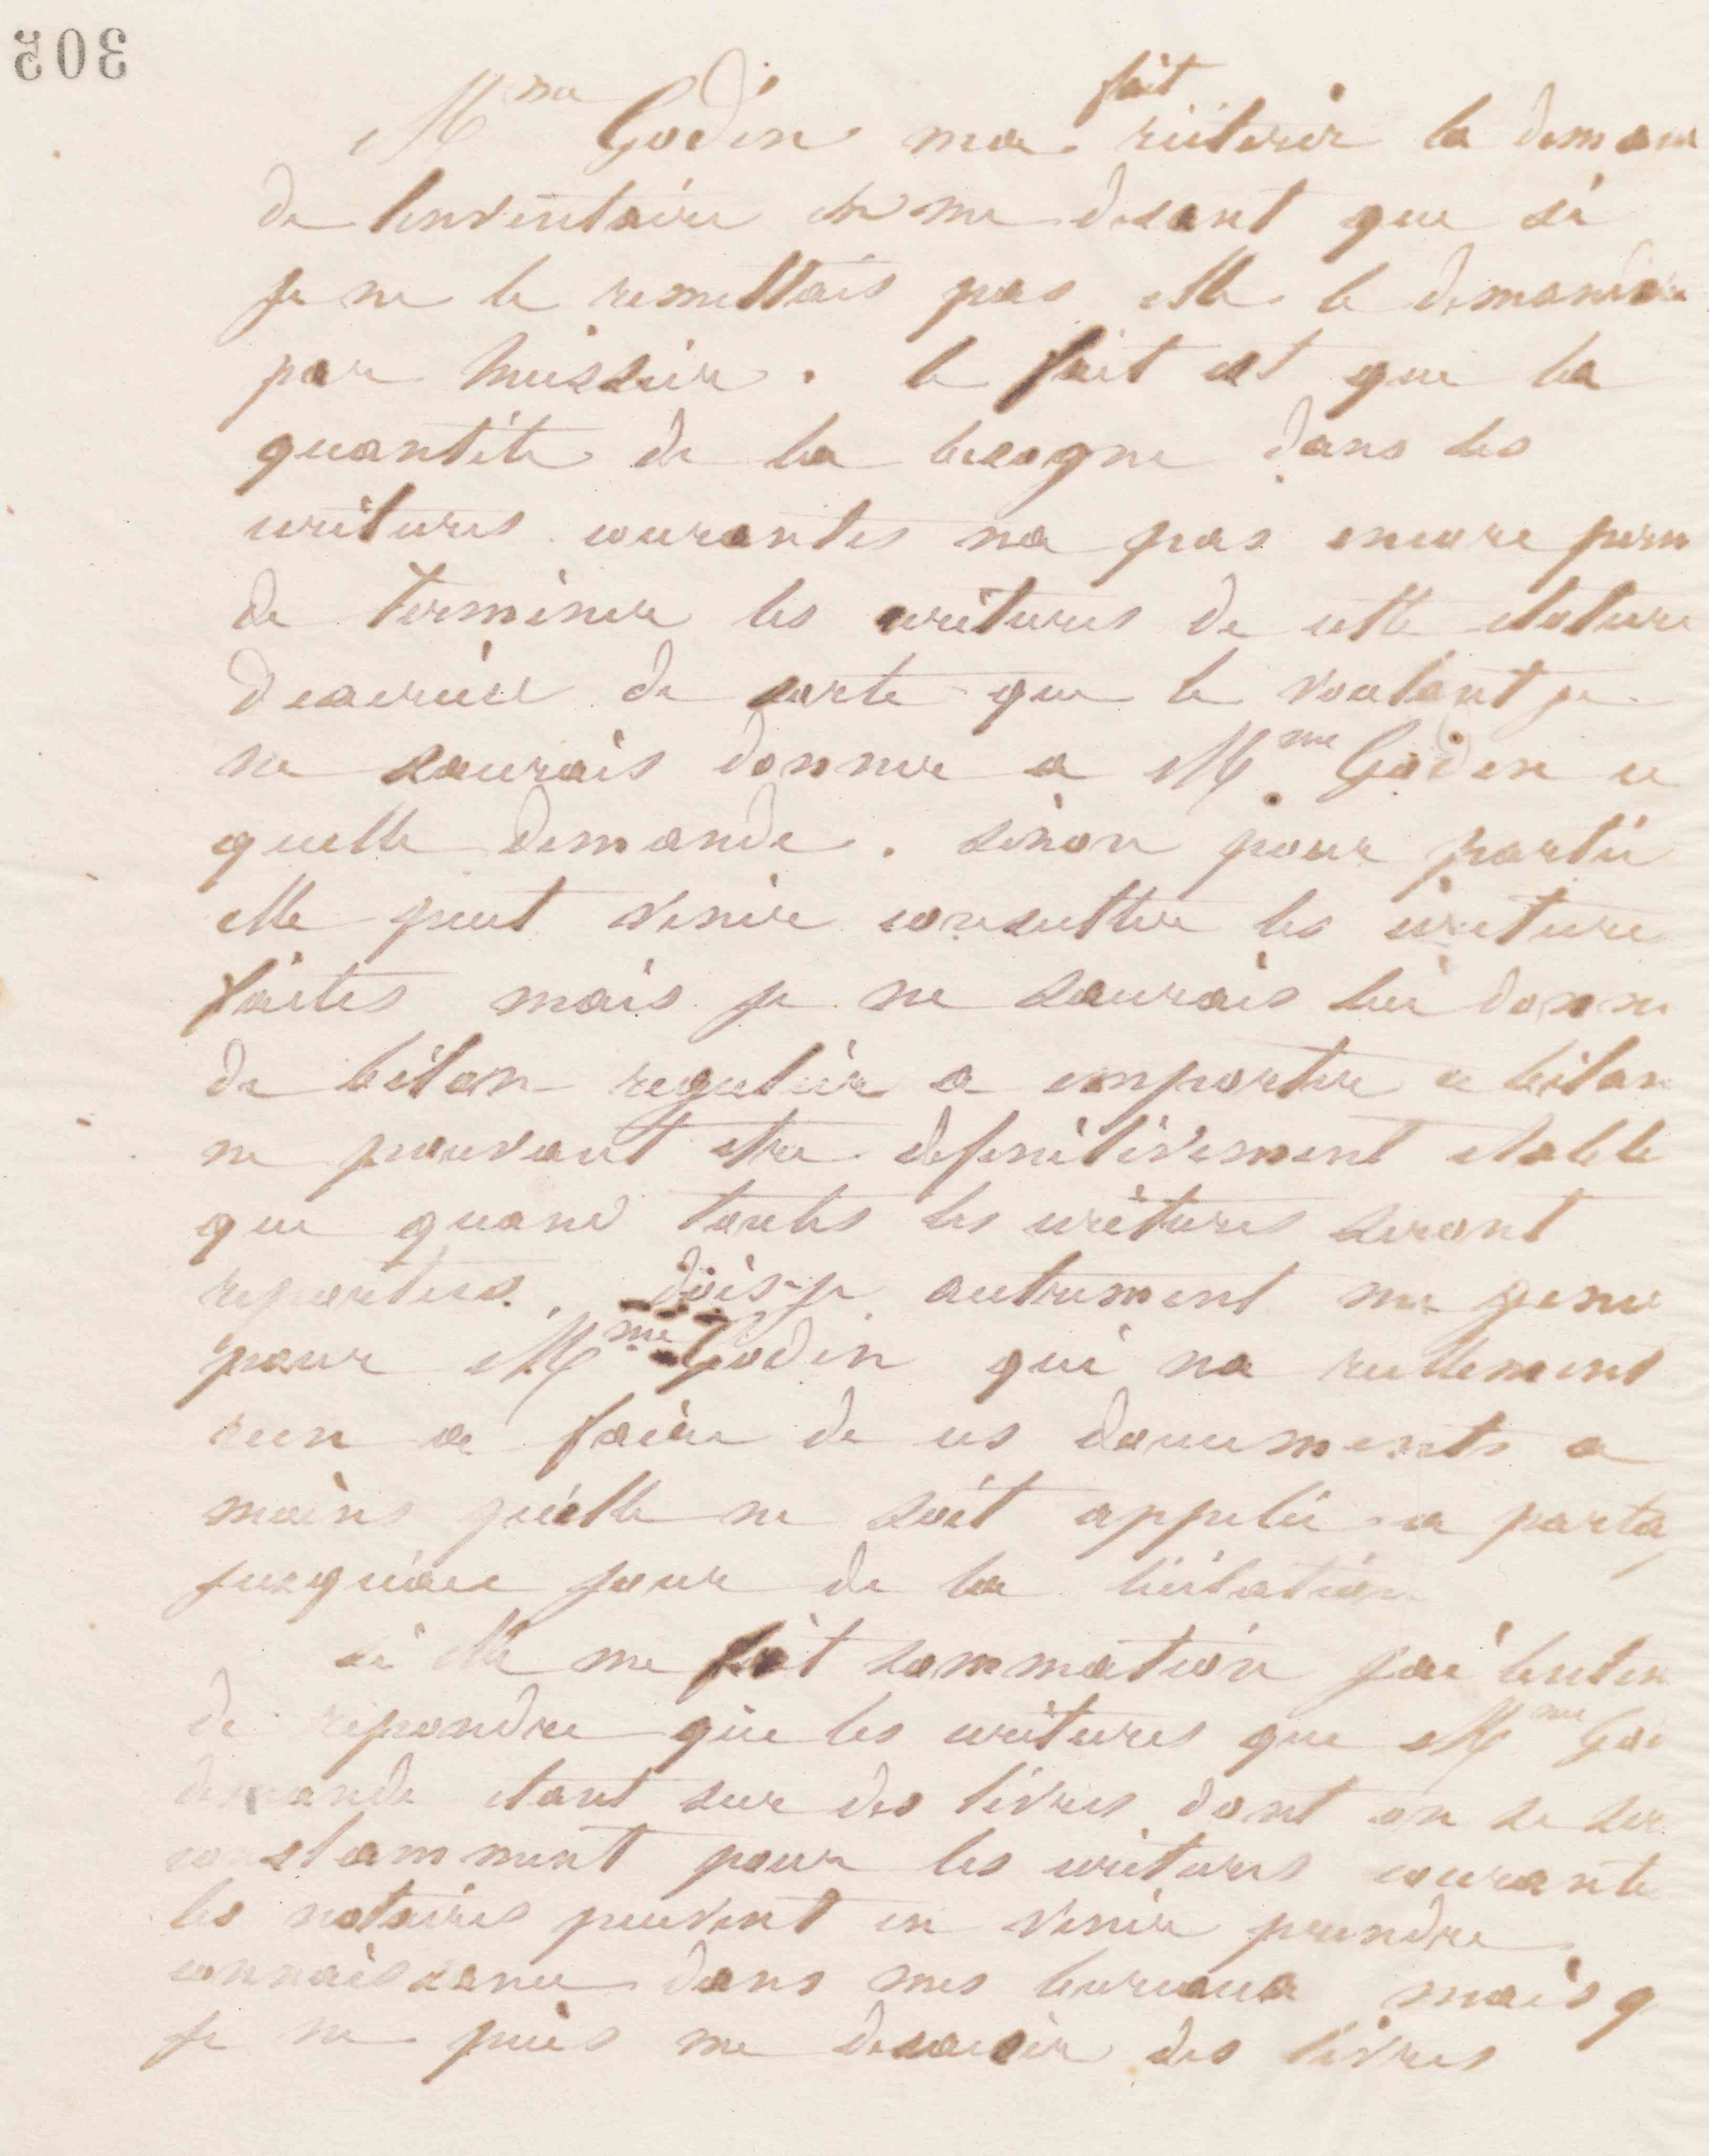 305
fait
Mme Godin ma réiterer la deman
de linventaire en me disant que si
je ne le remettais pas elle le demandera
par huissier. le fait est que la
quantité de la besogne dans les
ecritures courantes na pas encore perm
de terminer les ecritures de cette cloture
dexercice de sorte que le voulant je
ne saurais donner a Mme Godin ce
quelle demande. sinon pour partie
elle peut venir consulter les ecriture
faites mais je ne saurais lui donne
de bilan regulier a emporter ce bilan
ne pouvant etre definitivement etable
que quand toutes les ecritures seront
reportées. dois-je autrement me gener
pour Mme Godin qui na reellement
rien a faire de ces documents a
moins quelle ne soit appelée a parta
jusquau jour de la licitation
si elle me fait sommation jai linten
de repondre que les ecritures que Mme God
demande etant sur des livres dont on se ser
constamment pour les ecritures courante
les notaires peuvent en venir prendre
connaissance dans mes bureaux mais q
je ne puis me desaisir des livres